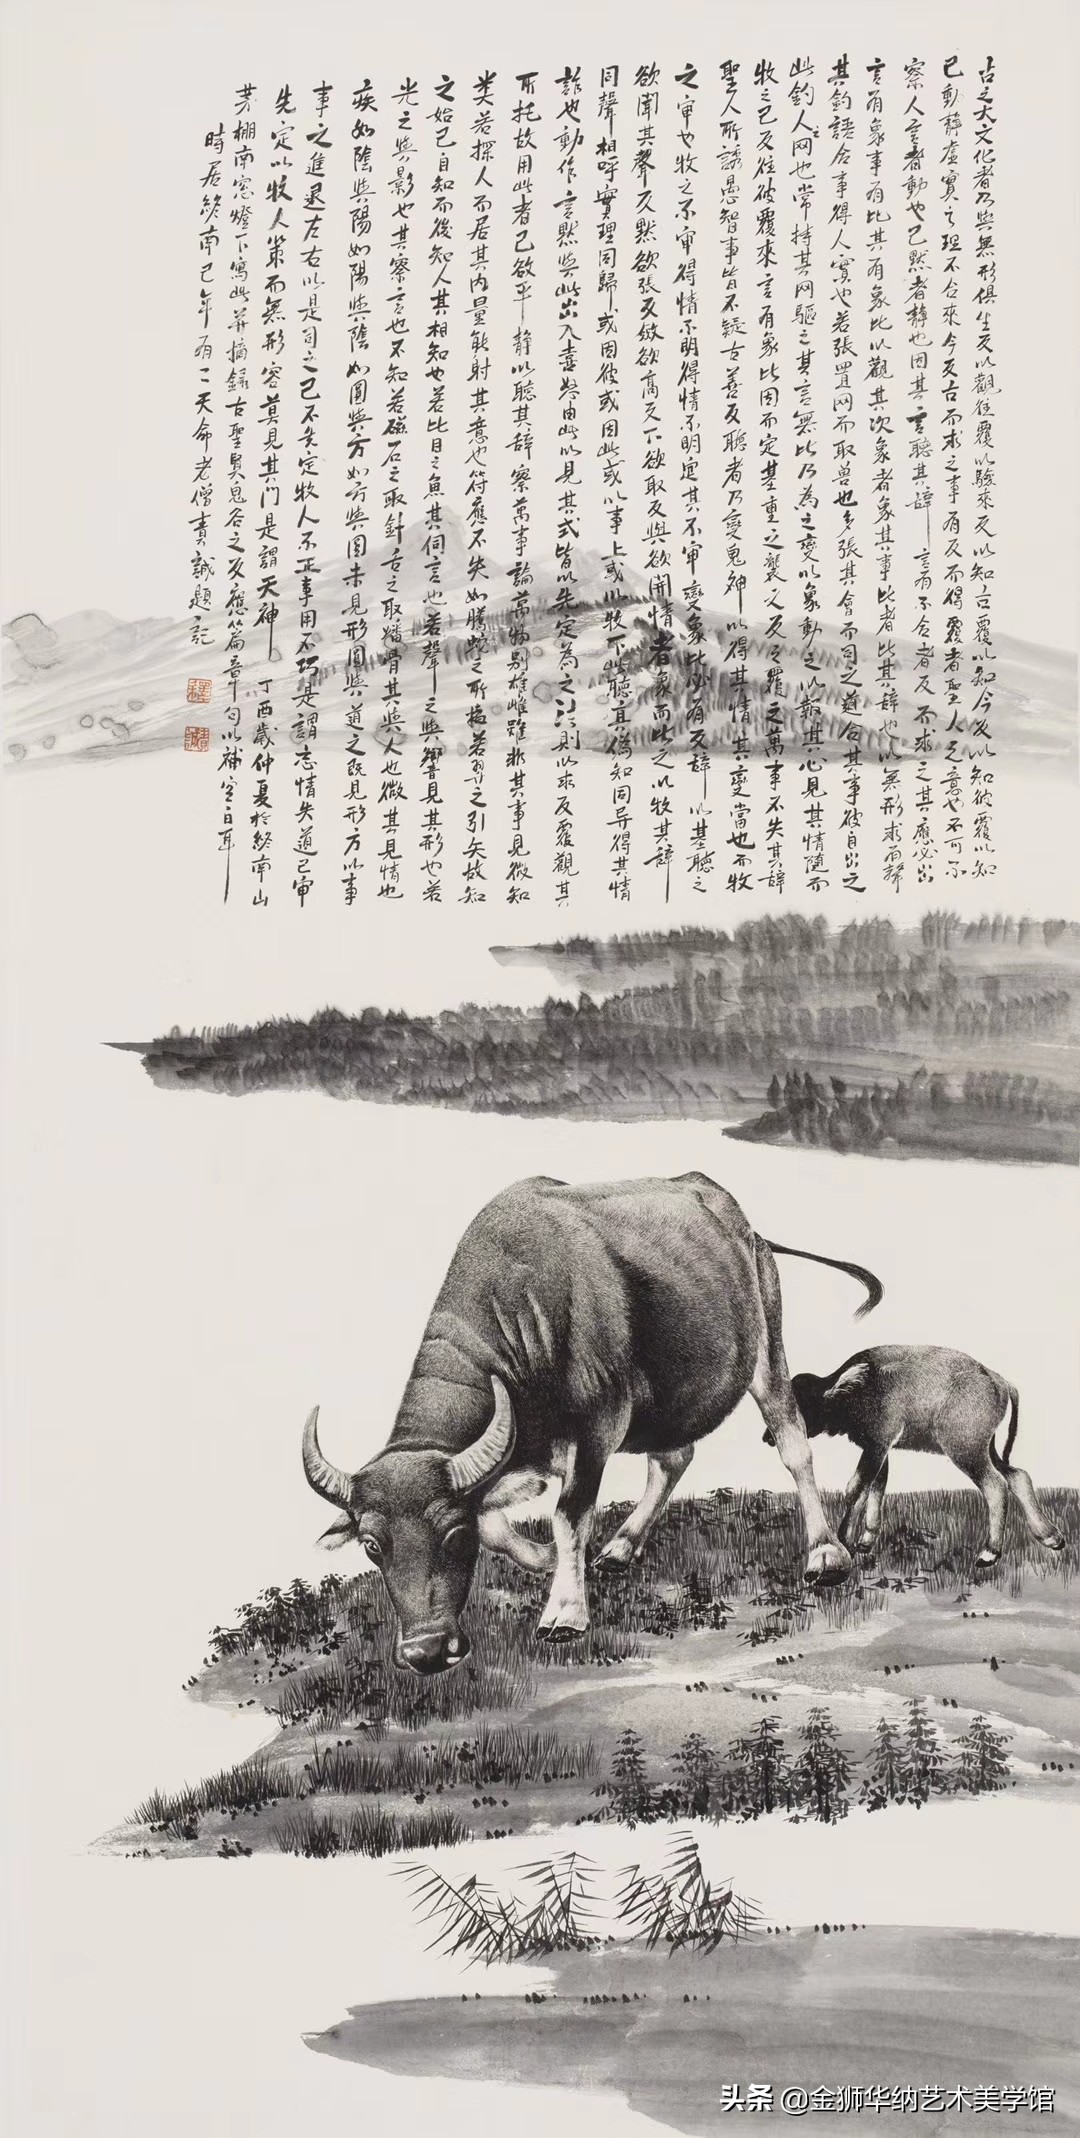 古之大文化者乃與無形俱生反以觀往覆以驗來反以知古覆以知今反以知彼覆以知
己動靜虛實之理不合來今反古而求之事有反而得覆者聖人之意也不可不
察人言者動也己默者靜也因其言聽其辭言有不合者反不求之其應必出
言有象事有比其有象比以觀其次象者象其事比者比其辭也以無形求有聲
其釣語合事得人實也若張罝网而取兽也多張其會而司之道合其事彼自出之
此釣人之网也常持其网驅之其言無比乃為之變以象動之以報其心見其情隨而
牧之己反往彼覆來言有象比因而定基重之襲之反之覆之萬事不失其辭
聖人所誘愚智事皆不疑古善反聽者乃變鬼神以得其情其變當也而牧
之审也牧之不审得情不明得情不明定其不审變象比必有反辭以基聽之
欲聞其聲反默欲張反斂欲高反下欲取反與欲開情者象而比之以牧其辭
同聲相呼實理同歸或因彼或因此或以事上或以牧下此聽真偽知同异得其情
詐也動作言默與此出入喜怒由此以見其式皆以先定為之法則以求反覆觀其
所托故用此者己欲平静以聽其辞察萬事論萬物别雄雌雖非其事見微知
类若探人而居其内量能射其意也符應不失如騰蛇之所指若羿之引矢故知
之始己自知而後知人其相知也若比目之魚其伺言也若聲之與響見其形也若
光之與影也其察言也不知若磁石之取針舌之取燔骨其與人也微其見情也
疾如陰與陽如陽與陰如圓與方如方與圓未見形圓與道之既見形方以事
事之進退左右以是司之己不失定牧人不正事用不巧是謂忘情失道己审
先定以牧人策而無形容莫見其門是謂天神 丁酉歲仲夏於終南山
茅棚南窓燈下寫此并摘録古聖賢鬼谷之反應篇章句以補空白耳
時居終南已年有二天命老僧真誠題記
头条 @金狮华纳艺术美学馆